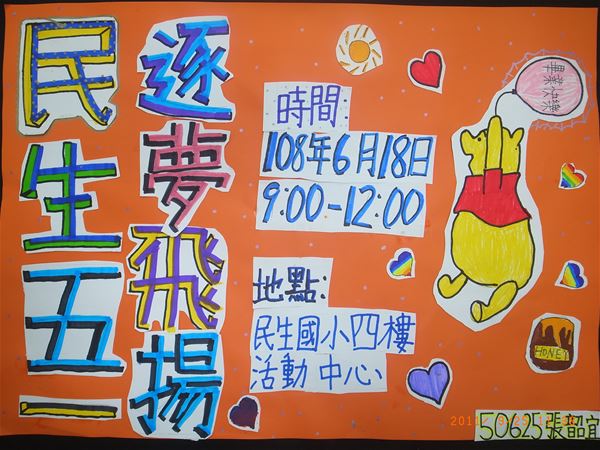 民生五一
逐夢飛揚
時間:
108年6月18日
9:00-12:00
地點:
民生國小四樓
活動中心
畢業快樂
HONEY
50625張韶宜